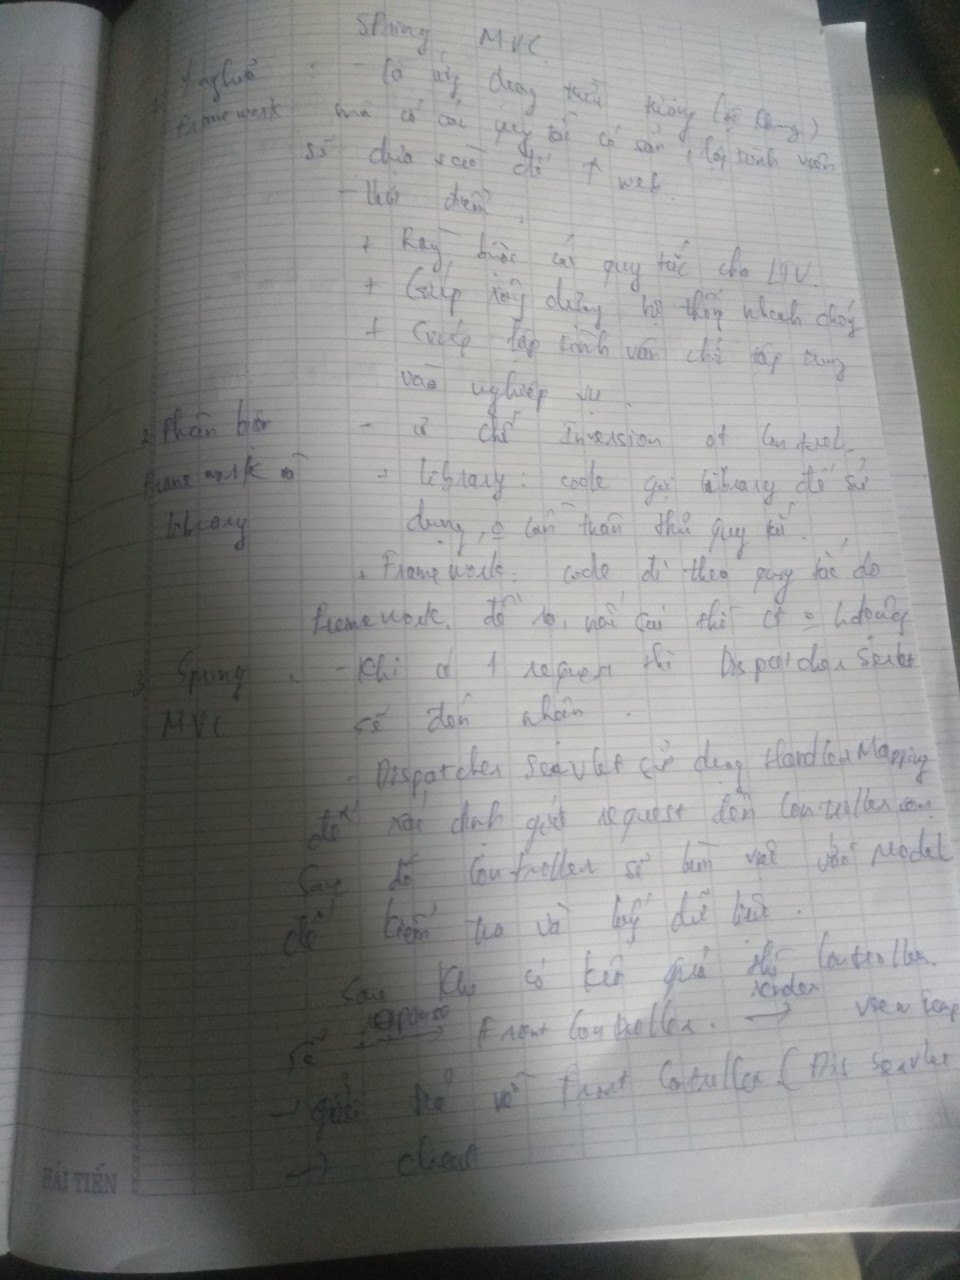 Spring MVC
1. Ý nghĩa : - Là ứng dụng kiến không (bộ khung)
framework mà có các quy tắc có sẵn, lập trình viên
sẽ dựa vào để ↑ web.
- Đặc điểm.
+ Ràng buộc các quy tắc cho LTV.
+ Giúp xây dựng hệ thống nhanh chóng
+ Giúp lập trình viên chỉ tập trung
vào nghiệp vụ.
2. Phân biệt - ở chỗ Inversion of Control.
framework và + library: code gọi library để sử
library dụng, cần tuân thủ quy tắc.
+ Framework: code đi theo quy tắc do
framework. đề ra, nếu thì
3. Spring - Khi có 1 request thì Dispatcher Servlet
MVC sẽ đón nhận.
- Dispatcher Servlet sử dụng HandlerMapping
để xác định gửi request đến Controller con
Sau đó Controller sẽ làm việc với Model
để kiểm tra và lấy dữ liệu.
Sau khi có kết quả thì Controller.
sẽ response → Front Controller. render → View
→ gửi trả về Front Controller (Dis Servlet
→ client
HẢI TIẾN